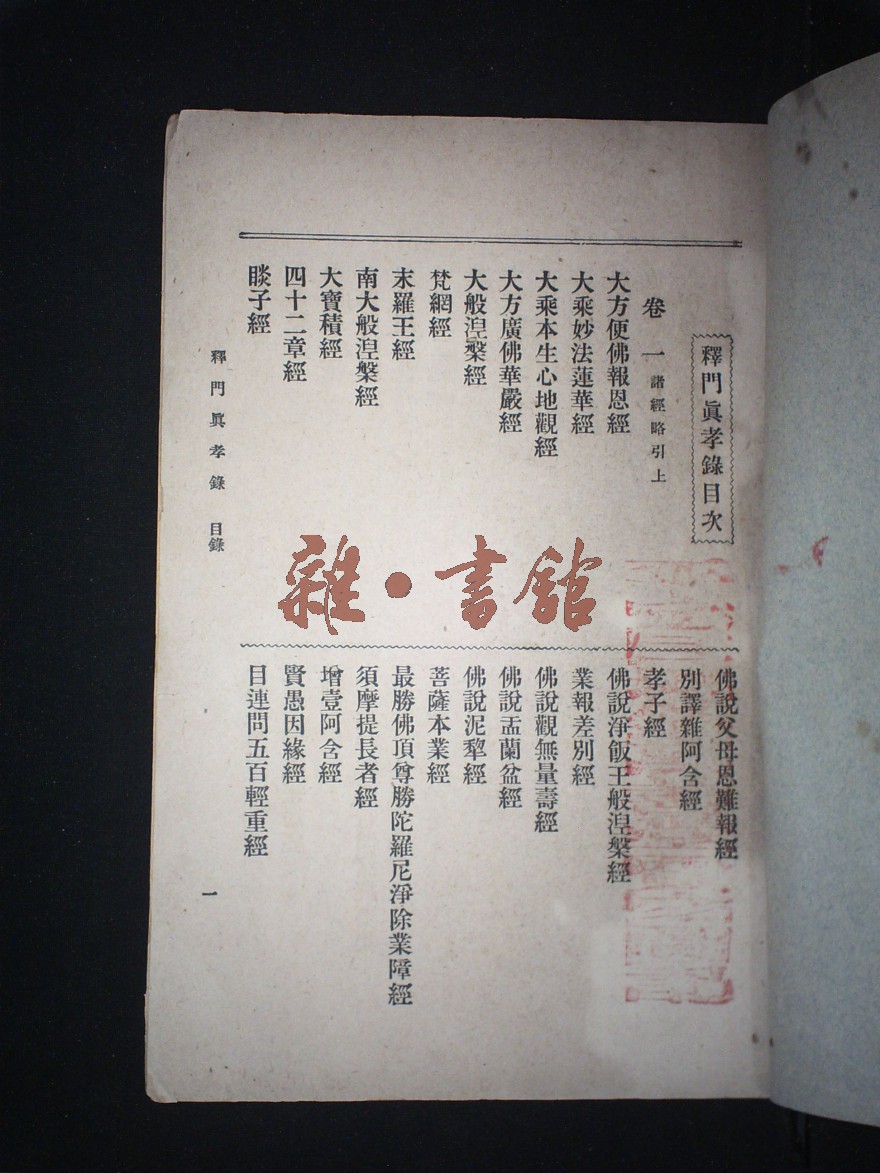 釋門眞孝錄目次
卷一 諸經略引上
大方便佛報恩經
大乘妙法蓮華經
大乘本生心地觀經
大方廣佛華嚴經
大般涅槃經
梵網經
末羅王經
南大般涅槃經
大寶積經
四十二章經
睒子經
佛說父母恩難報經
別譯雜阿含經
孝子經
佛說淨飯王般涅槃經
業報差別經
佛說觀無量壽經
佛說盂蘭盆經
佛說泥犂經
菩薩本業經
最勝佛頂尊勝陀羅尼淨除業障經
須摩提長者經
增壹阿含經
賢愚因緣經
目連問五百輕重經
釋門眞孝錄 目錄
一
雜·書館